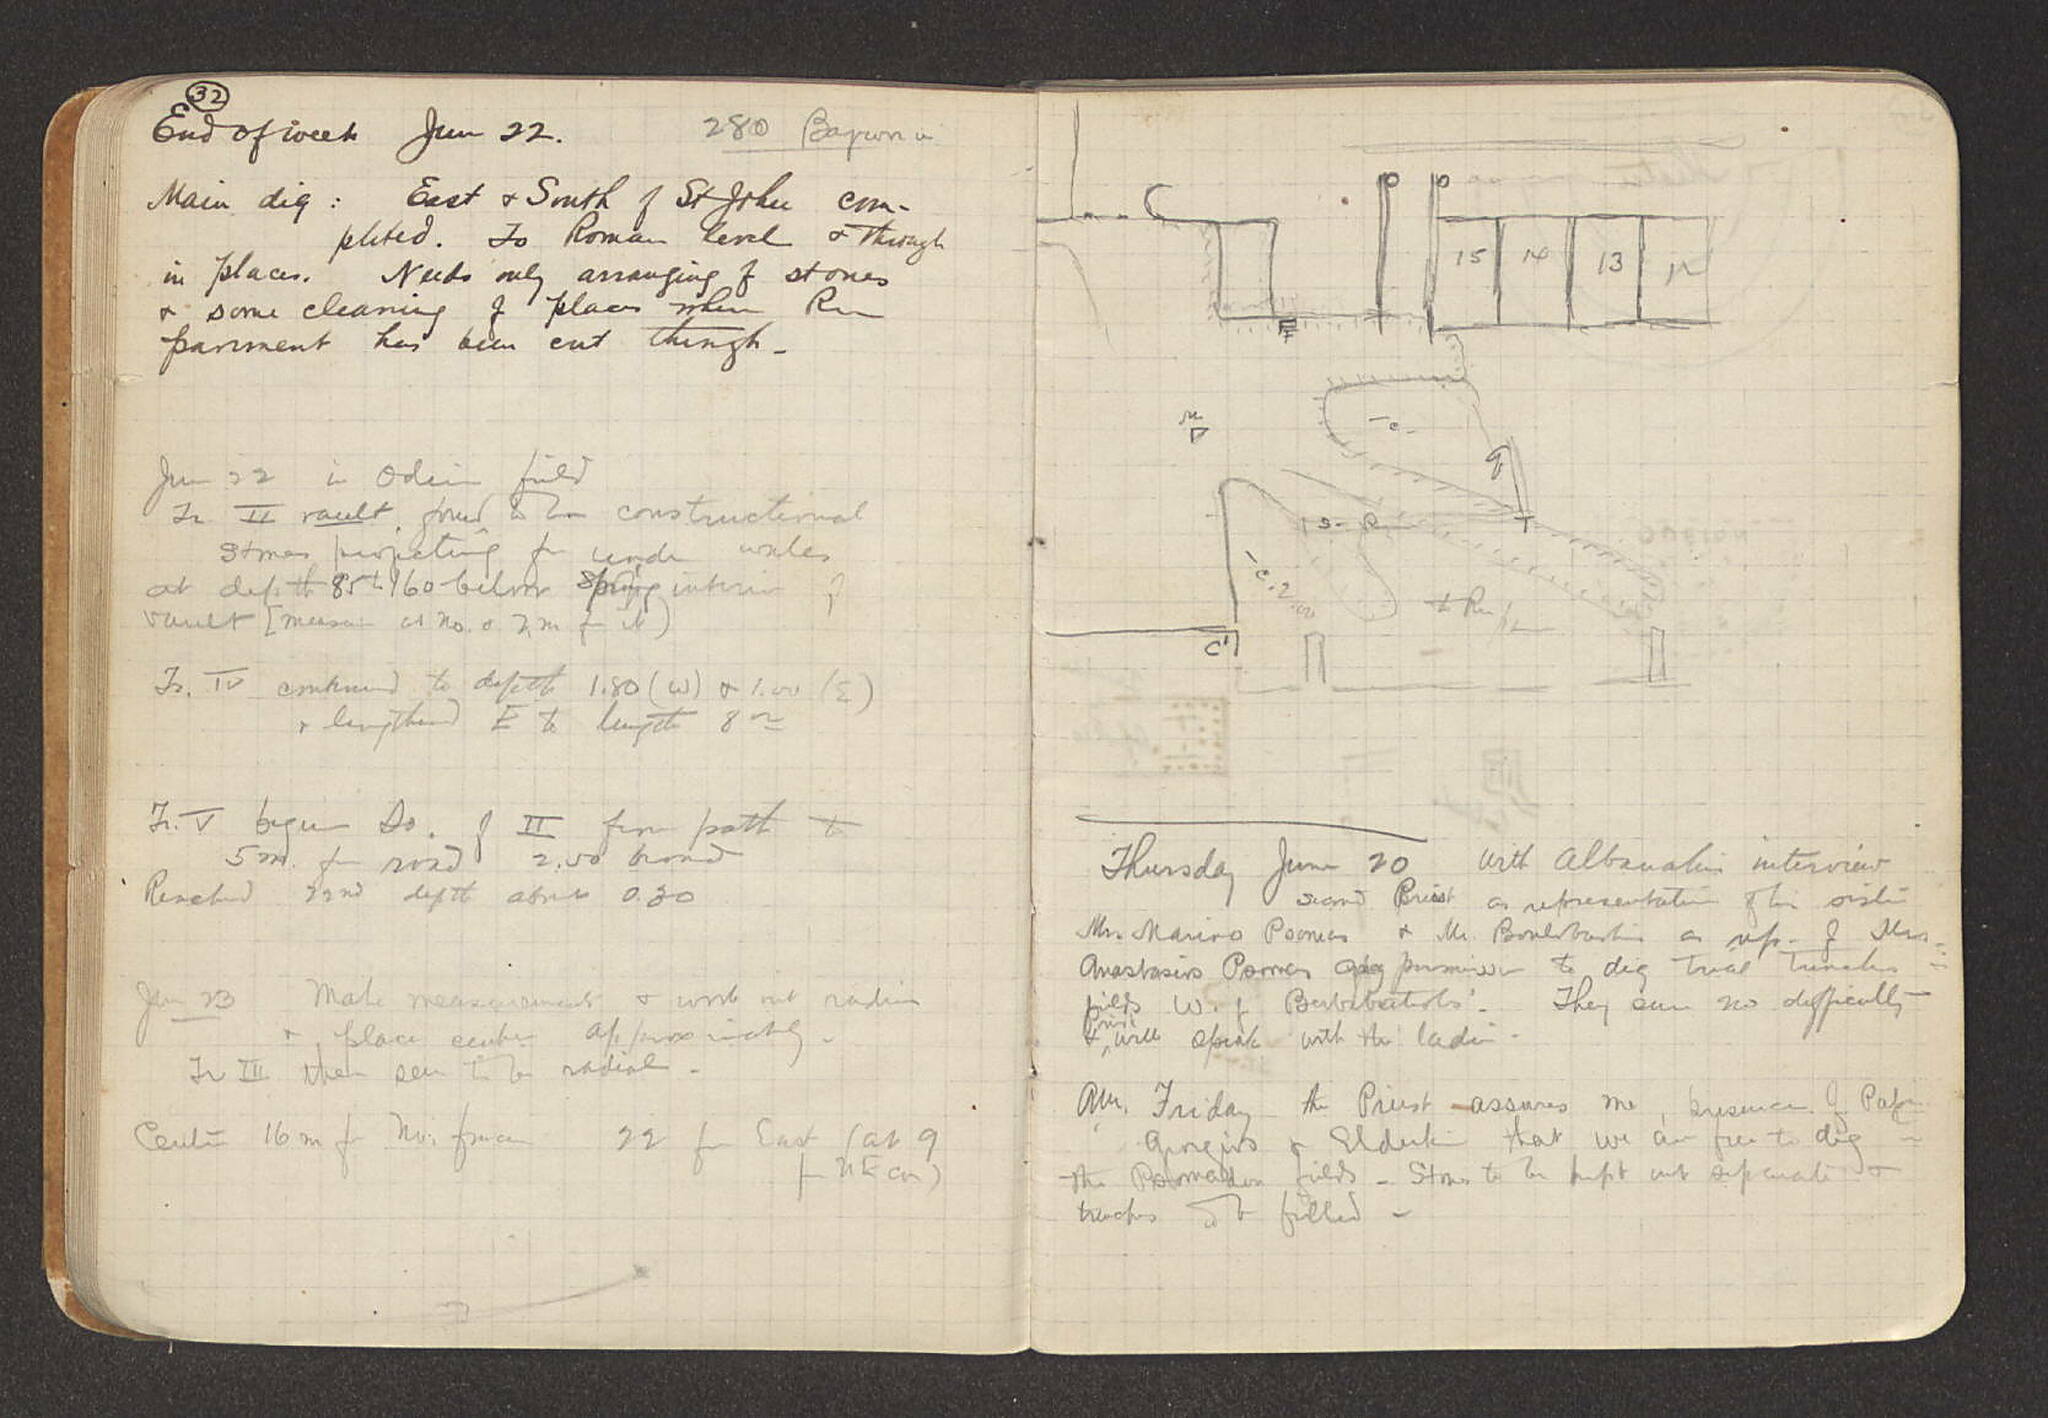 32
End of week Jun 22. 280
Main dig: East & South of St John com-
pleted. To Roman level & through
in places. Needs only arranging of stones
& some cleaning of places where Rm
pavement has been cut through -
Jun 22 in Odeion field
Tr. II vault, found to be constructional
stones projecting fr under
at depth 85 to 160 below spring interior of
vault [measure at no. 2 m fr N)
Tr. IV continued to depth 1.80 (W) & 1.00 (E)
& lengthened E to length 8 m
Tr. V begun So. of II from path to
5 m. fr road 2.50 broad
Reached 22nd depth about 0.30
Jun 23 Make measurements & work out radius
& place center approximately -
Tr III then seen to be radial -
Center 16 m fr No. 22 fr East (at 9
fr NE cor)
15 14 13 12
E
N
-c-
T
C'
Thursday June 20 with Albanakis interview
second Priest as representative of his sister
Mrs. Marino Psomas & Mr. as rep. of Mrs.
Anastasios Psomas permission to dig trial trenches in
fields W. of They see no difficulty
& will speak with the ladies -
Friday the Priest assures me, presence of
Georgios & Elderkin that we are free to dig in
the fields - Stones to be kept separate &
trenches to be filled -